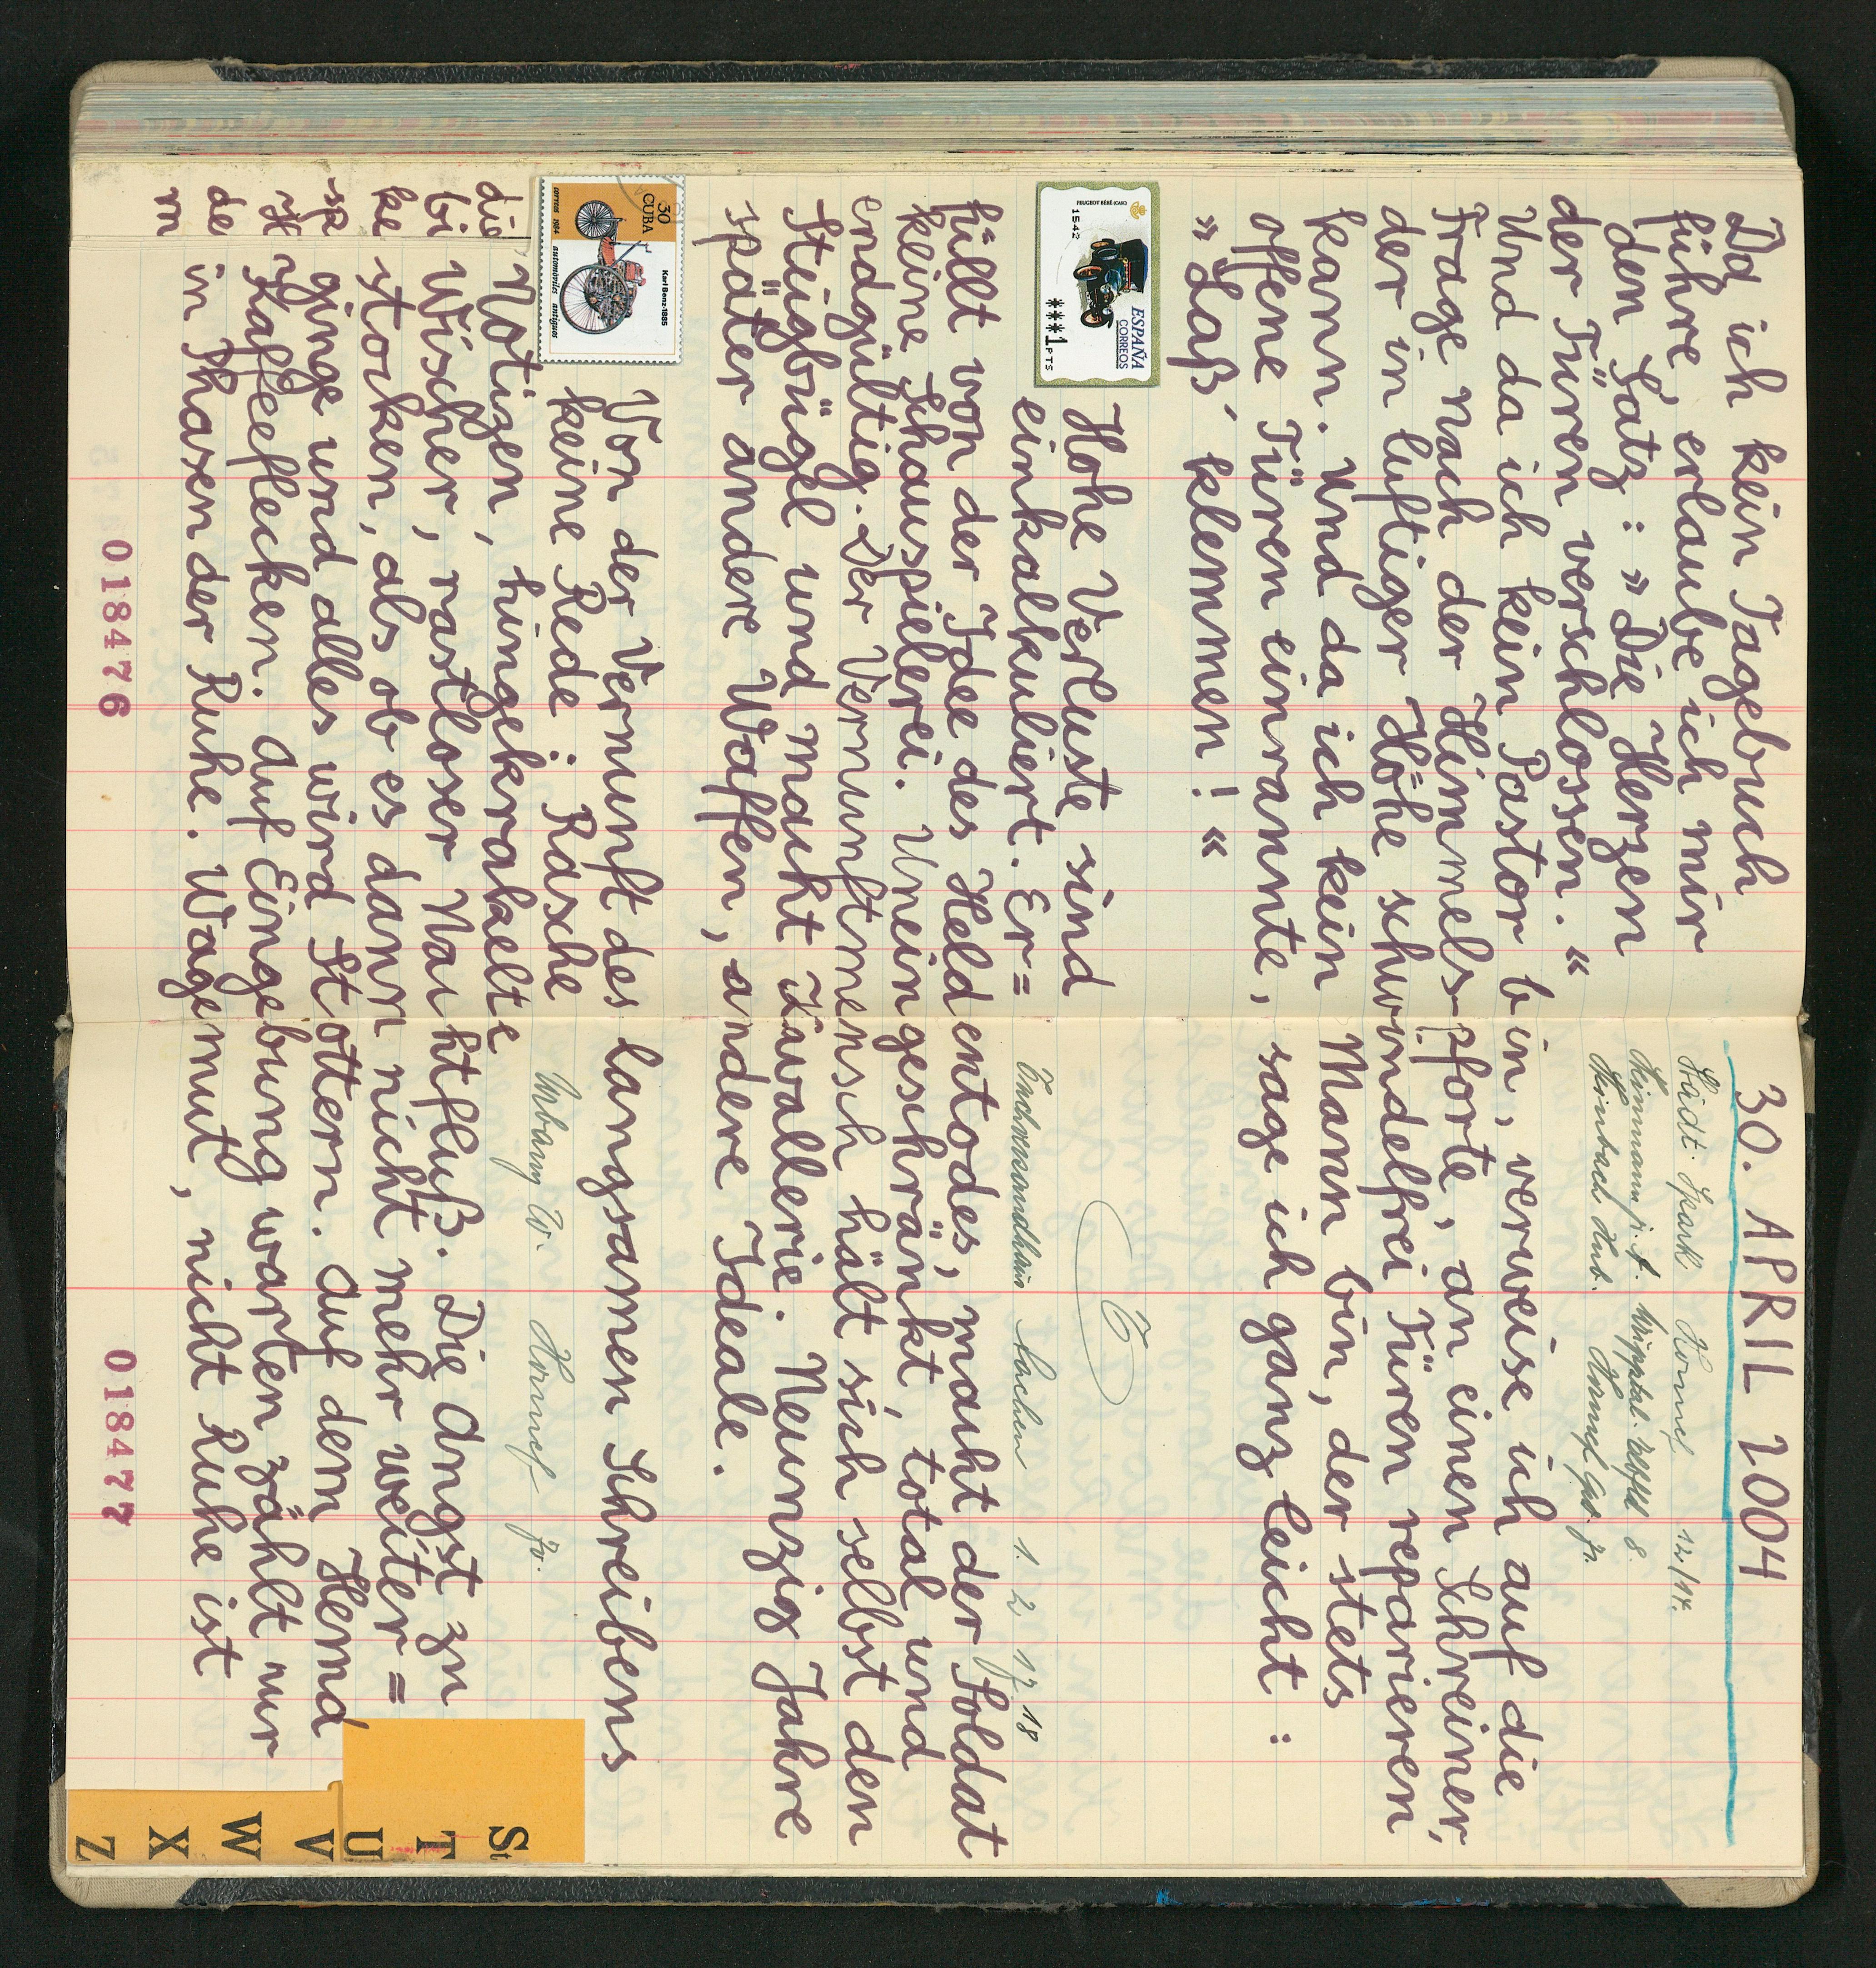 30. APRIL 2004
Da ich kein Tagebuch
führe, erlaube ich mir
den Satz: » Die Herzen
der Türen verschlossen. «
Und da ich kein Pastor bin, verweise ich auf die
Frage nach der Himmelspforte, an einen Schreiner,
der in luftiger Höhe schwindelfrei Türen reparieren
kann. Und da ich kein Mann bin, der stets
offene Türen einrannte, sage ich ganz leicht:
» Laß' klemmen! «
Städt. Spark. Hornef 12/14.
Hornef
ESPAÑA
CORREOS
***1 PTS
PEUGEOT BÉBÉ (CARE)
1542
Hohe Verluste sind
einkalkuliert. Er=
füllt von der Idee des Heldentodes, macht der Soldat
keine Schauspielerei. Uneingeschränkt, total und
endgültig. Der Vernunftmensch hält sich selbst den
Steigbügel und macht Kavallerie. Neunzig Jahre
später andere Waffen, andere Ideale.
Sachen 1. 2 17 18
30
CUBA
Karl Benz-1885
correos 1984 automoviles antiguos
Von der Vernunft des langsamen Schreibens
keine Rede: Rasche
Notizen, hingekrakelte
Wischer, rastloser Nachtfluß. Die Angst zu
stocken, als ob es dann nicht mehr weiter=
ginge und alles wird Stottern. Auf dem Hemd
Kaffeeflecken. Auf Eingebung warten zählt nur
in Phasen der Ruhe. Wagemut, nicht Ruhe ist
Hornef
die
bi
ke
sp
de
m
018476
018477
St
T
U
V
W
X
Z